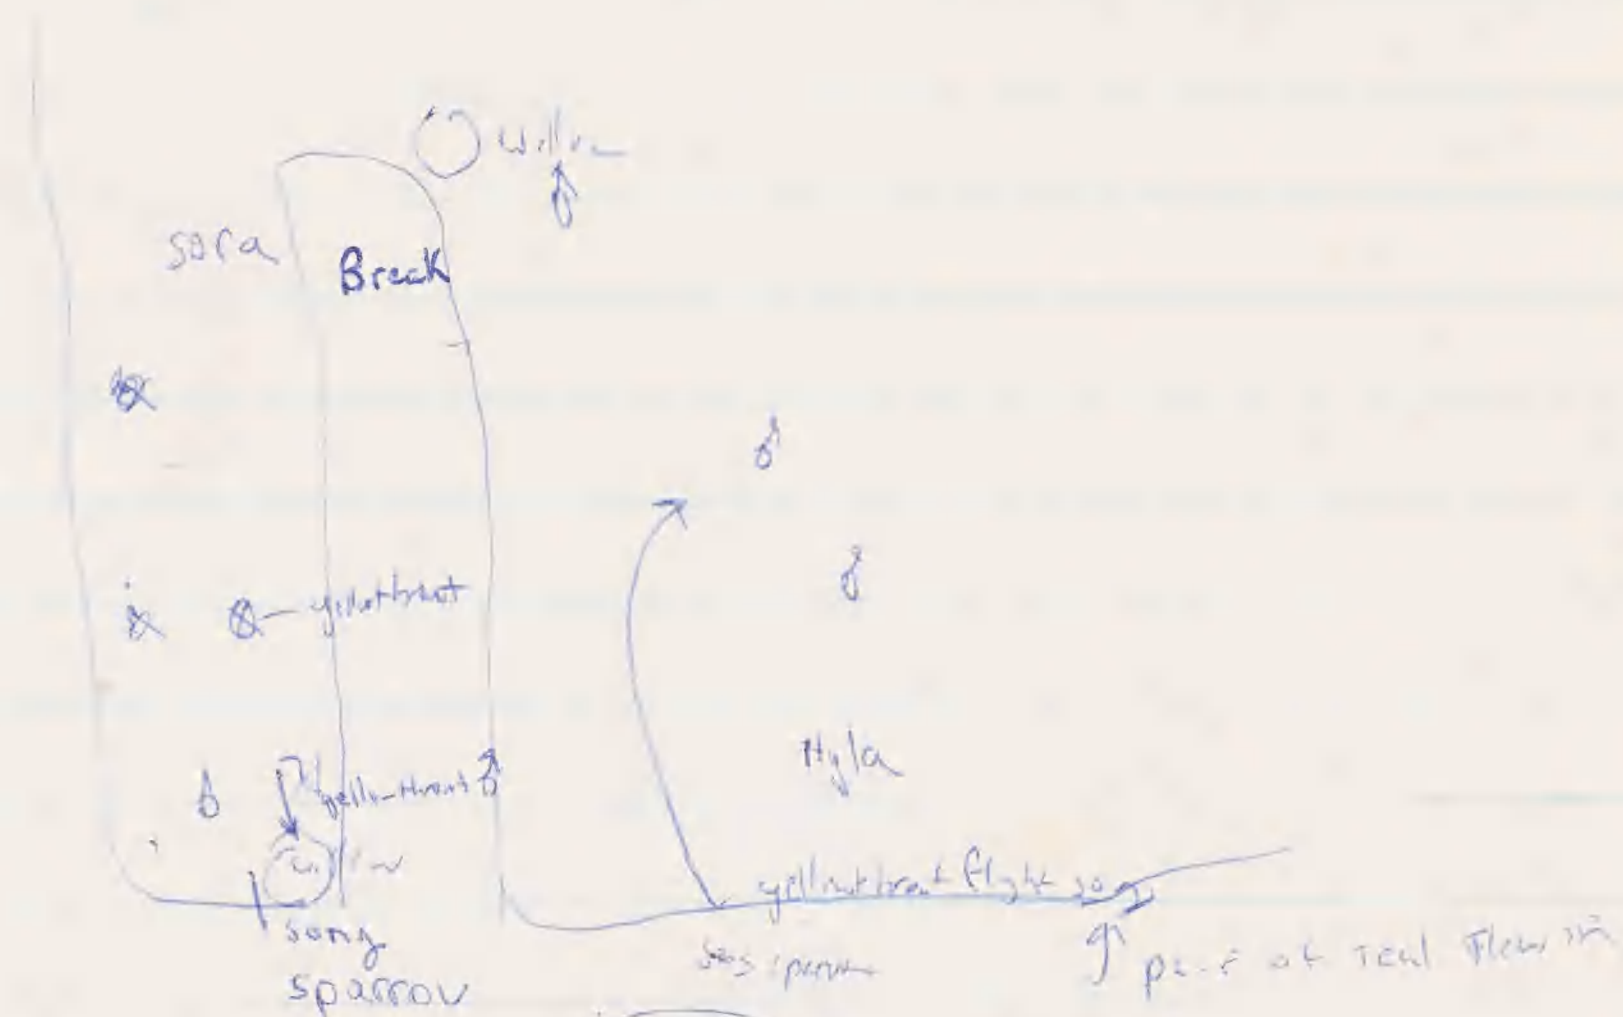 Willow
♂
sora
Break
♂
♂
yellowthroat
Hyla
yellowthroat ♂
Willow
yellowthroat flight song
song
sparrow
song sparrow
pair of teal flew in